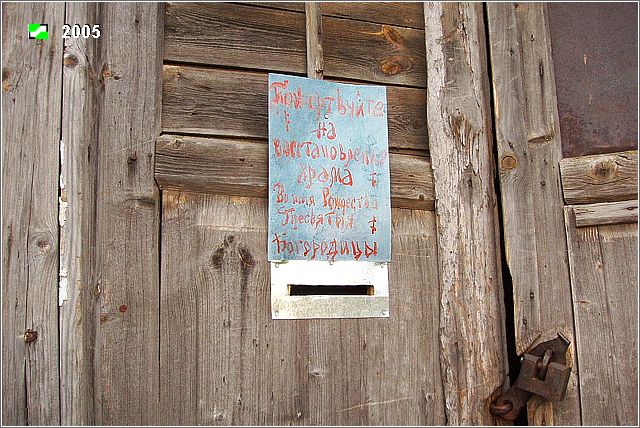 2005
Пожертвуйте
на
восстановление
храма
Во имя Рождества
Пресвятыя
Богородицы